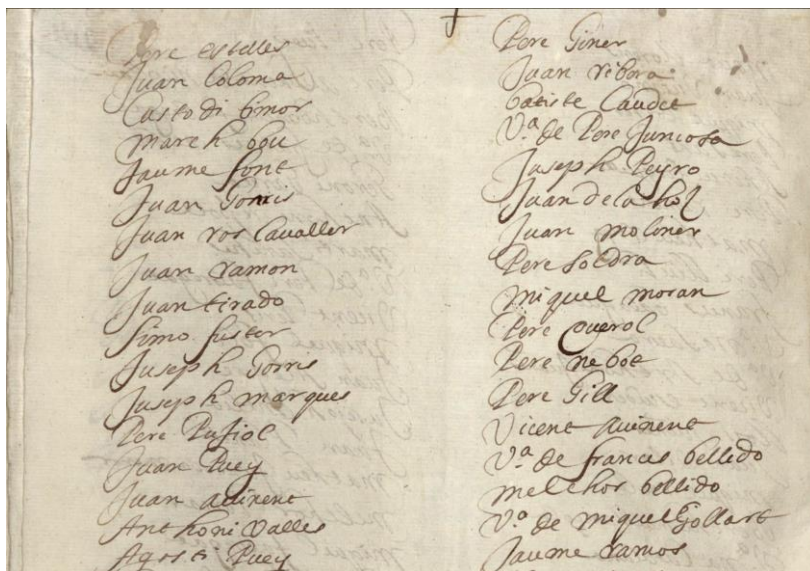 Pere estelles
Juan Coloma
Custodi bmor
march bou
Jaume font
Juan Gorris
Juan ros Cavaller
Juan ramon
Juan tirado
Simo fuster
Juseph Gorris
Juseph marques
Pere Puñol
Juan Puey
Juan avinent
Anthoni Valles
Agosti Puey
Pere Giner
Juan ribera
batiste Caudet
V.ª de Pere Juncosa
Juseph Peyro
Juan de la hoz
Juan moliner
Pere soldra
miquel moran
Pere querol
Pere nebot
Pere Gill
Vicent avinent
V.ª de frances bellido
melchor bellido
V.ª de miquel Gollart
Jaume ramos